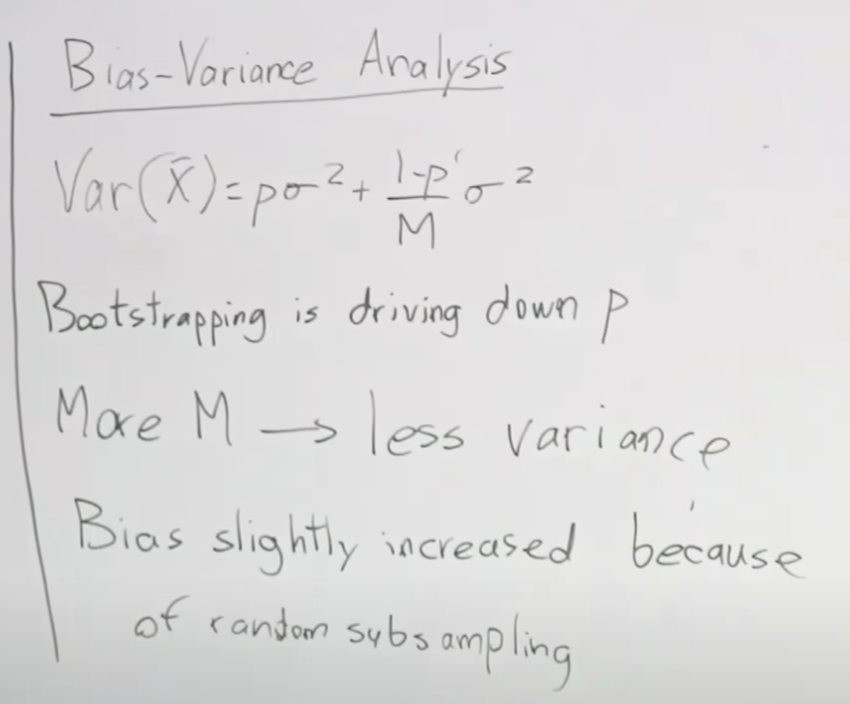 Bias-Variance Analysis
Var(X̄) = pσ² + (1-p)/M σ²
Bootstrapping is driving down p
More M → less variance
Bias slightly increased because
of random subsampling